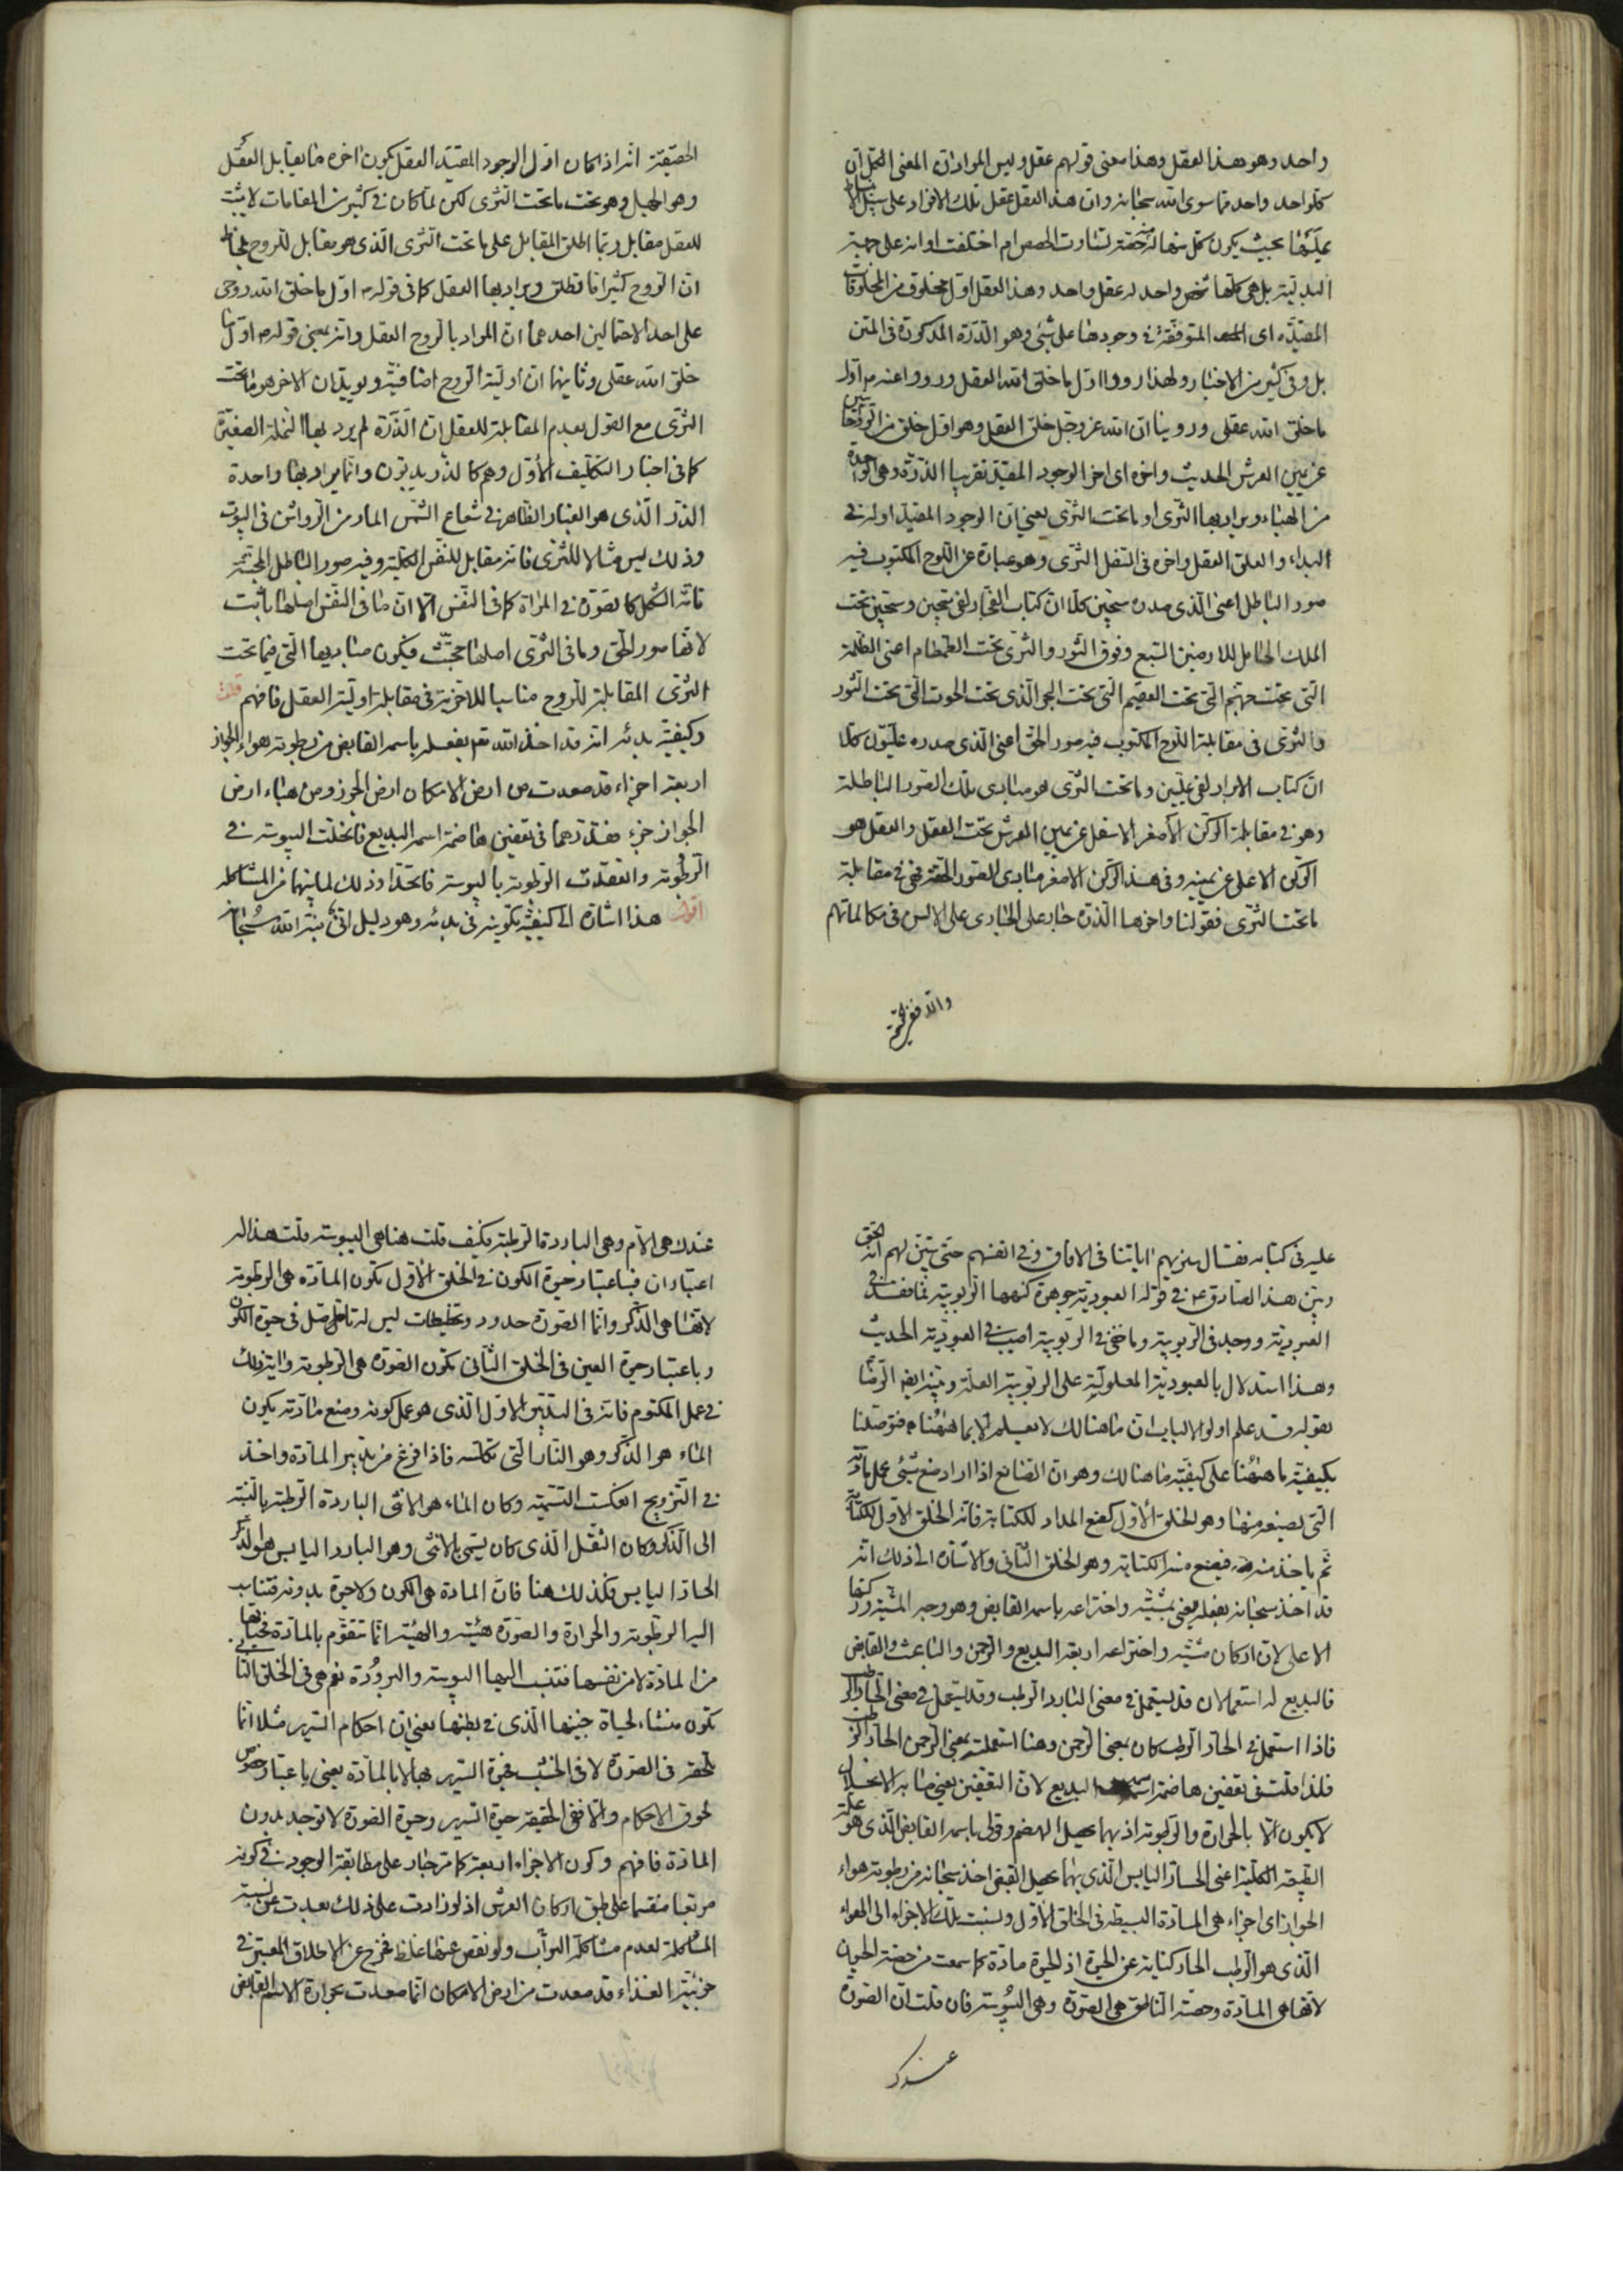 واحد وهو هذا العقل وهذا معنى قولهم عقل وليس المراد ان المعنى الكل ان
كلواحد واحد مما سوى الله سبحانه وان هذا العقل عقل تلك الافراد على سبيل
بحيث يكون كل منها له حصة تساوت الحصص ام اختلفت او انه على جهة
البدلية بل هي كلها شخص واحد له عقل واحد وهذا العقل اول مخلوق من المخلوقات
المقيدة اى المتوقفة فى وجودها على شئ وهو الدرة المذكورة فى المتن
بل وفى كثير من الاخبار ولهذا رووا اول ما خلق الله العقل ورووا عنه ص اول
ما خلق الله عقلى وروينا ان الله عز وجل خلق العقل وهو اول خلق من الروحانيين
عن يمين العرش الحديث واخره اى اخر الوجود المقيد تقريبا الذرة وهى الواحدة
من الهباء ويراد بها الثرى او ما تحت الثرى يعنى ان الوجود المقيد اوله فى
البداء والعلق العقل واخره فى التفل الثرى وهو عبارة عن اللوح المكتوب فيه
صور الباطل اعنى الذى مدده سجين كلا ان كتاب الفجار لفى سجين وسجين تحت
الملك الحامل للارضين السبع وفوق الثور والثرى تحت الطمطام اعنى الظلمة
التى تحت جهنم التى تحت العقيم التى تحت البحر الذى تحت الحوت التى تحت الثور
والثرى فى مقابلة اللوح المكتوب فيه صور الحق اعنى الذى مدده عليون كلا
ان كتاب الابرار لفى عليين وما تحت الثرى هو مبادى تلك الصور الباطلة
وهو فى مقابلة الركن الاصفر الاسفل عن يمين العرش تحت العقل والعقل هو
الركن الاعلى عن يمينه وفى هذا الركن الاصفر مبادى الصور الحقة فهى فى مقابلة
ما تحت الثرى فقولنا واخرها الذرة جار على الجارى على الالسن فى مكالماتهم
الحقيقة انه اذا كان اول الوجود المقيد العقل يكون اخره ما يقابل العقل
وهو الجهل وهو تحت ما تحت الثرى لكن لما كان فى كثير من المقامات لا يثبت
للعقل مقابل ربما اطلق المقابل على ما تحت الثرى الذى هو مقابل للروح بلحاظ
ان الروح كثيرا ما تطلق ويراد بها العقل كما فى قوله ص اول ما خلق الله روحى
على احد الاحتمالين احدهما ان المراد بالروح العقل وانه بمعنى قوله ص اول ما
خلق الله عقلى وثانيهما ان اولية الروح اضافية ويؤيد ان الاخر هو ما تحت
الثرى مع القول بعدم المقابلة للعقل ان الذرة لم يرد بها النملة الصغيرة
كما فى اخبار التكليف الاول وهم كالذر يدبون وانما يراد بها واحدة
الذر الذى هو الغبار الظاهر فى شعاع الشمس المار من الرواشن فى البيوت
وذلك ليس مثالا للثرى فانه مقابل للنفس الكلية وفيه صور الباطل المجتثة
تامة الشكل كالصورة فى المراة كما فى النفس الا ان ما فى النفس اصلها ثابت
لانها صور الحق وما فى الثرى اصلها مجتث فيكون مباديها التى فيما تحت
الثرى المقابلة للروح مناسبا للاخرية فى مقابلة اولية العقل فافهم قلت
وكيفية بدئه انه قد اخذ الله تع بفعله باسمه القابض من رطوبة هواء الجواز
اربعة اجزاء قد صعدت من ارض الامكان ارض الجرز ومن هباء ارض
الجواز جزء فقدرهما فى تعفين هاضمة اسمه البديع فانحلت اليبوسة فى
الرطوبة وانعقدت الرطوبة باليبوسة فاتحدا وذلك لما بينهما من المشاكلة
اقول هذا اشارة الى كيفية تكوينه فى بدئه وهو دليل انى نبه الله سبحانه
عليه فى كتابه فقال سنريهم اياتنا فى الافاق وفى انفسهم حتى يتبين لهم انه الحق
وبين هذا الصادق ع فى قوله العبودية جوهرة كنهها الربوبية فما فقد فى
العبودية وجد فى الربوبية وما خفى فى الربوبية اصيب فى العبودية الحديث
وهذا استدلال بالعبودية المعلولية على الربوبية العلة وبينه ايضا الرضا
بقوله قد علم اولوا الالباب ان ما هنالك لا يعلم الا بما ههنا فتوصلنا
بكيفية ما ههنا على كيفية ما هنالك وهو ان الصانع اذا اراد صنع شئ عمل مادته
التى يصنعه منها وهو الخلق الاول كصنع المداد للكتابة فانه الخلق الاول للكتابة
ثم ياخذ منه فيصنع منه الكتابة وهو الخلق الثانى والاشارة الى ذلك انه
قد اخذ سبحانه بفعله يعنى بمشيته واختراعه باسمه القابض وهو وجه المشية وركنها
الاعلى لان اركان مشيته واختراعه اربعة البديع والرحمن والباعث والقابض
فالبديع له استعمالان قد يستعمل فى معنى البارد الرطب وقد يستعمل فى معنى الحار الرطب
فاذا استعمل فى الحار الرطب كان بمعنى الرحمن وهنا استعملته بمعنى الرحمن الحار الرطب
فلذا قلت فى تعفين هاضمة اسمه البديع لان التعفين يعنى ما به الانحلال
لا يكون الا بالحرارة والرطوبة اذ بهما يحصل الهضم وقولى باسمه القابض الذى هو علة
الطبيعة الكلية اعنى الحار اليابس الذى بهما يحصل القبض اخذ سبحانه من رطوبة هواء
الجواز اى اجزاء هى المادة البسيطة فى الخلق الاول ونسبت تلك الاجزاء الى الهواء
الذى هو الرطب الحار كناية عن الحيوة اذ الحيوة مادة كما سمعت من حصة الحيوان
لانها هى المادة وحصة الناطق هى الصورة وهى اليبوسة فان قلت ان الصورة
عندك
عندك هى الام وهى الباردة الرطبة فكيف قلت هنا هى اليبوسة قلت هذا له
اعتباران فباعتبار حيوة الكون فى الخلق الاول تكون المادة هى الرطوبة
لانها هى الذكر وانما الصورة حدود وتخطيطات ليس لها تاصل فى حيوة الكون
وباعتبار حيوة العين فى الخلق الثانى تكون الصورة هى الرطوبة واية ذلك
فى عمل المكتوم فانه فى التدبير الاول الذى هو عمل كونه وصنع مادته يكون
الماء هو الذكر وهو النار التى تكلسه فاذا فرغ من تدبير المادة واخذ
فى التزويج انعكست التسمية وكان الماء هو الانثى الباردة الرطبة بالنسبة
الى الذكر وكان الثفل الذى كان يسمى بالانثى وهو البارد اليابس هو الذكر
الحار اليابس فكذلك هنا فان المادة هى الكون ولا حيوة بدونه فتناسب
اليه الرطوبة والحرارة والصورة هيئته والهيئة انما تتقوم بالمادة فحياتها
من المادة لا من نفسها فتنسب اليها اليبوسة والبرودة نعم هى فى الخلق الثانى
تكون منشاء لحياة جنينها الذى فى بطنها يعنى ان احكام السرير مثلا انما
تظهر فى الصورة لا فى الخشب فحيوة السرير بها لا بالمادة يعنى باعتبار خصوص
لحوق الاحكام والا ففى الحقيقة حيوة السرير وحيوة الصورة لا توجد بدون
المادة فافهم وكون الاجزاء اربعة كما مر جار على مطابقة الوجود فى كونه
مربعا منقسما على طبق اركان العرش اذ لو زادت على ذلك بعدت عن نسبة
المشاكلة لعدم مشاكلة التراب ولو نقص عنها غلظ فخرج عن الاطلاق المعتبر فى
جزئية الغذاء قد صعدت من ارض الامكان انما صعدت بحرارة الاسم القابض